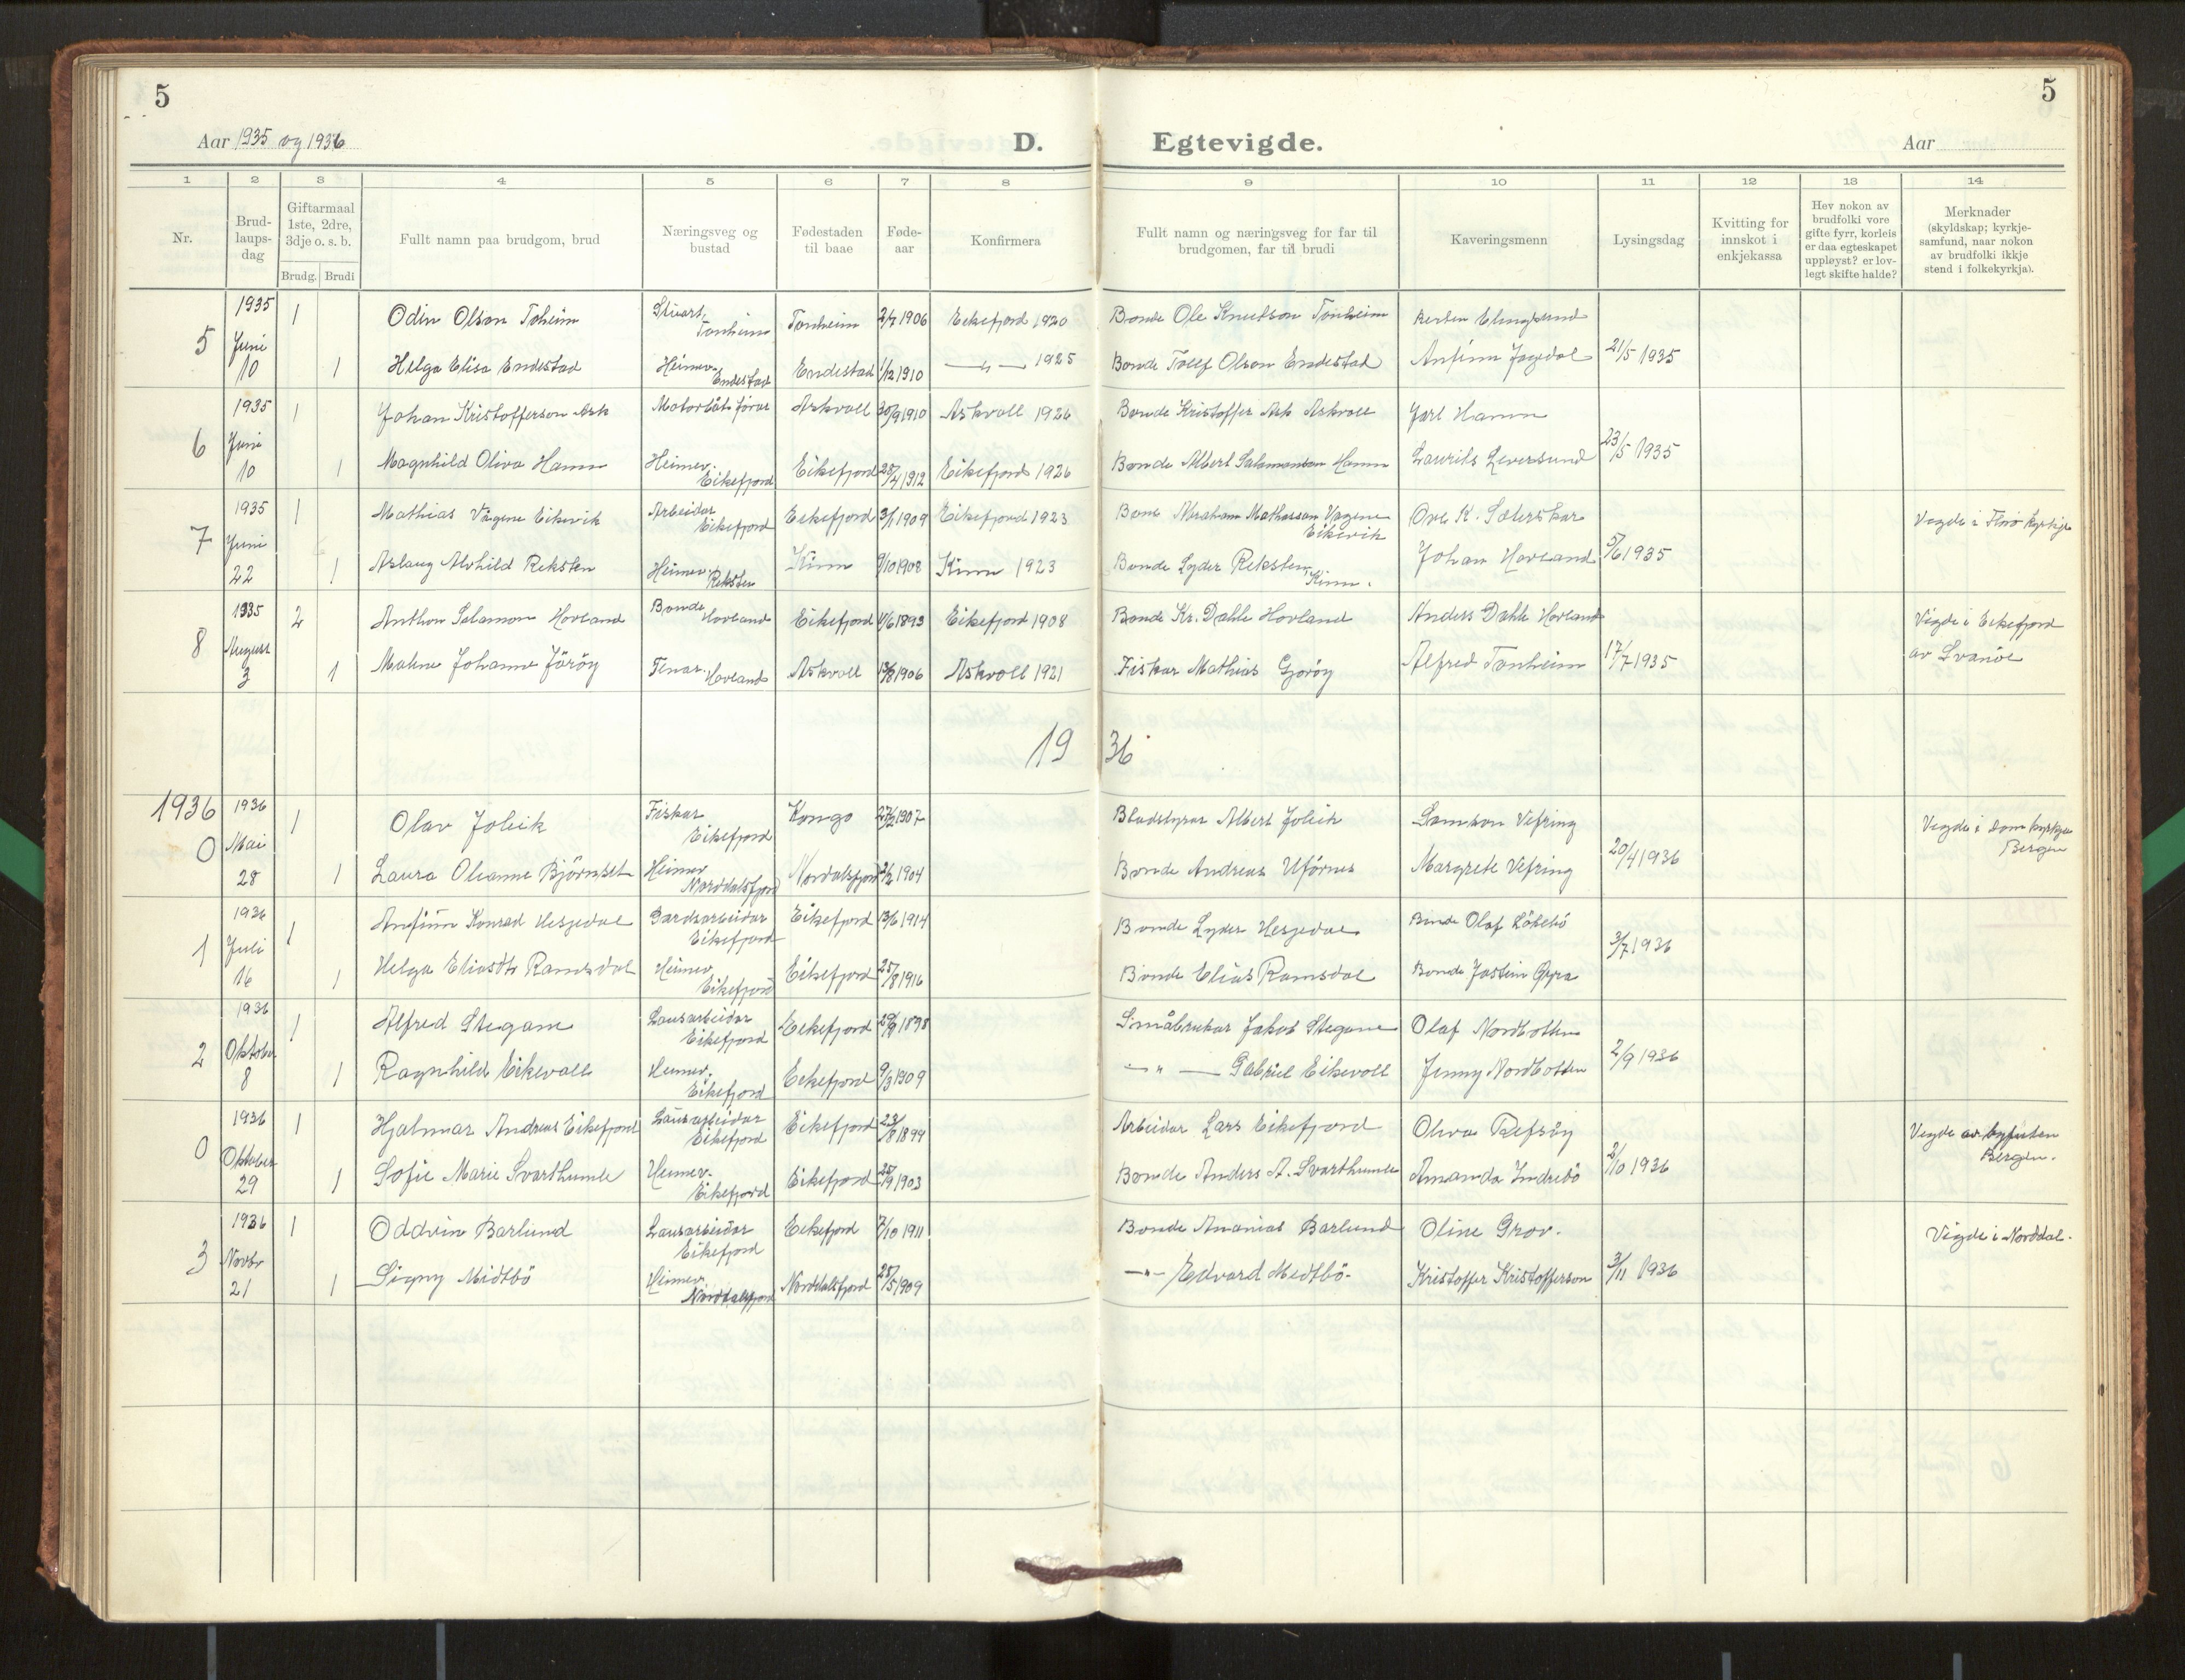 5
5
Aar 1935 og 1936
D.
Egtevigde.
Aar
1 2 3 4 5 6 7 8 9 10 11 12 13 14
Nr.
Brud-
laups-
dag
Giftarmaal
1ste, 2dre,
3dje o. s. b.
Brudg. Brudi
Fullt namn paa brudgom, brud
Næringsveg og
bustad
Fødestaden
til baae
Føde-
aar
Konfirmera
Fullt namn og næringsveg for far til
brudgomen, far til brudi
Kaveringsmenn
Lysingsdag
Kvitting for
innskot i
enkjekassa
Hev nokon av
brudfolki vore
gifte fyrr, korleis
er daa egteskapet
uppløyst? er lov-
legt skifte halde?
Merknader
(skyldskap; kyrkje-
samfund, naar nokon
av brudfolki ikkje
stend i folkekyrkja).
5
1935
Juni
10
1 Odin Olson Toheim Stuart, Tonheim Tonheim 2/7 1906 Eikefjord 1920 Bonde Ole Knutson Tonheim
1 Helga Elisa Endestad Heimev. Endestad Endestad 1/12 1910 —"— 1925 Bonde Tollef Olson Endestad Anfinn 21/5 1935
6
1935
Juni
10
1 Johan Kristofferson Ask Motorbåtsförar Askvoll 30/9 1910 Askvoll 1926 Bonde Kristoffer Ask Askvoll Jarl Hamm
1 Magnhild Oliva Hamm Heimev. Eikefjord Eikefjord 28/4 1912 Eikefjord 1926 Bonde Albert Salamonson Hamm Laurits Leversund 23/5 1935
7
1935
Juni
22
1 Mathias Vågene Eikevik Arbeidar Eikefjord Eikefjord 3/1 1909 Eikefjord 1923 Bond Abraham Mathesson Vagene Eikevik Ove K. Sæterskar Vigde i Florö kyrkje
1 Aslaug Alvhild Reksten Heimev. Reksten Kinn 9/10 1908 Kinn 1923 Bonde Lyder Reksten, Kinn. Johan Hovland 5/6 1935
8
1935
August
3
2 Anthon Salamon Hovland Bonde Hovland Eikefjord 11/6 1893 Eikefjord 1908 Bonde Kr. Dahle Hovland Anders Dahle Hovland Vigde i Eikefjord
1 Malene Johanne Jöröy Tenar. Hovland Askvoll 13/8 1906 Askvoll 1921 Fiskar Mathias Gjöröy Alfred Tonheim 17/7 1935 av Svanöe
1936
1936
0
1936
Mai
28
1 Olav Joleik Fiskar Eikefjord Kongo 27/2 1907 Bladstyrar Albert Joleik Samson Vefring Vigde i Domkyrkja Bergen
1 Laura Oleanne Björnset Heimev. Norddalsfjord Nordalsfjord 2/2 1904 Bonde Andreas Uförnes Margrete Vefring 20/4 1936
1
1936
Juli
16
1 Anfinn Konrad Hesjedal Gardsarbeidar Eikefjord Eikefjord 13/6 1914 Bonde Lyder Hesjedal Bonde Olaf Lökebö
1 Helga Eliasdtr Ramsdal Heimev. Eikefjord Eikefjord 25/8 1916 Bonde Elias Ramsdal Bonde Jostein Øyra 3/7 1936
2
1936
Oktober
8
1 Alfred Stegane Lausarbeidar Eikefjord Eikefjord 29/9 1898 Småbrukar Jakob Stegane Olaf Nordbotten
1 Ragnhild Eikevoll Heimev. Eikefjord Eikefjord 9/3 1909 —"— Gabriel Eikevoll Jenny Nordbotten 2/9 1936
0
1936
Oktober
29
1 Hjalmar Andreas Eikefjord Lausarbeidar Eikefjord Eikefjord 23/8 1899 Arbeidar Lars Eikefjord Oliva Refsöy Vigde av byfuten Bergen.
1 Sofie Marie Svarthumle Heimev. Eikefjord Eikefjord 25/9 1903 Bonde Anders A. Svarthumle Amanda Indrebö 2/10 1936
3
1936
Novbr
21
1 Oddvin Barlund Lausarbeidar Eikefjord Eikefjord 7/10 1911 Bonde Ananias Barlund Oline Grov. Vigde i Norddal.
1 Signy Midtbö Heimev. Norddalsfjord Norddalsfjord 25/5 1909 —"— Edvard Midtbö. Kristoffer Kristofferson 3/11 1936